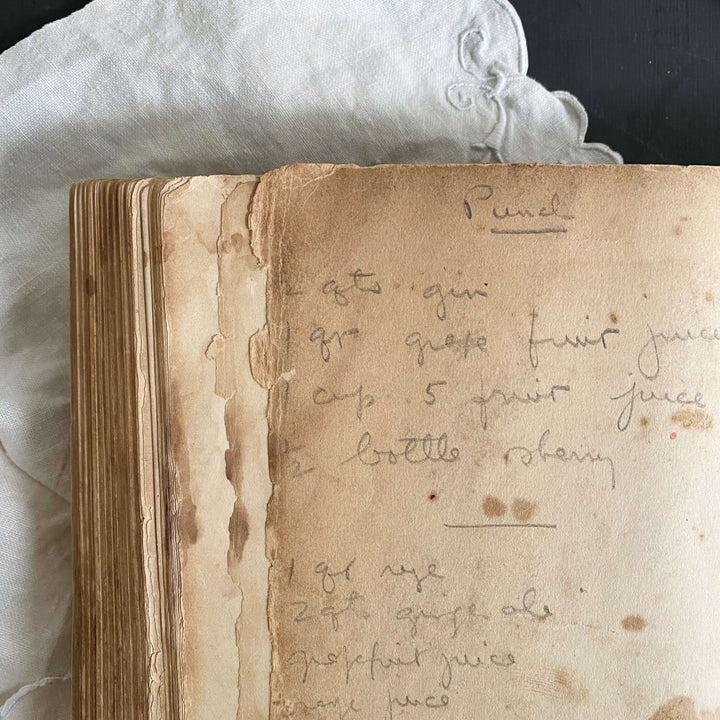 Punch
2 qts gin
1 qt grape fruit juice
1 cup 5 fruit juice
½ bottle sherry
1 qt rye
2 qts ginger ale
grapefruit juice
orange juice